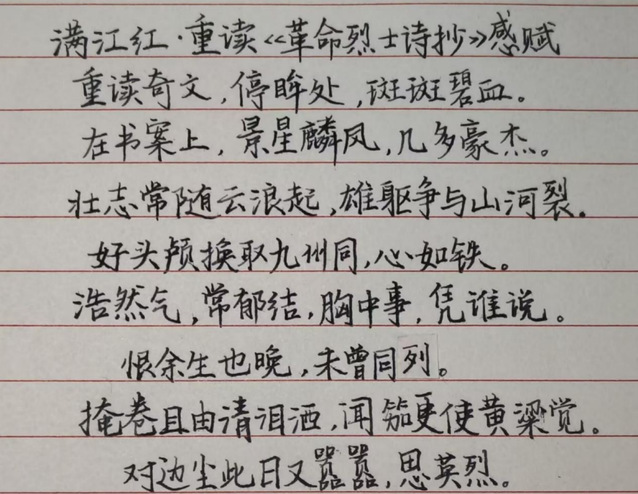 满江红·重读《革命烈士诗抄》感赋
重读奇文,停眸处,斑斑碧血。
在书案上,景星麟凤,几多豪杰。
壮志常随云浪起,雄躯争与山河裂。
好头颅换取九州同,心如铁。
浩然气,常郁结,胸中事,凭谁说。
恨余生也晚,未曾同列。
掩卷且由清泪洒,闻笳更使黄粱觉。
对边尘此日又嚣嚣,思英烈。